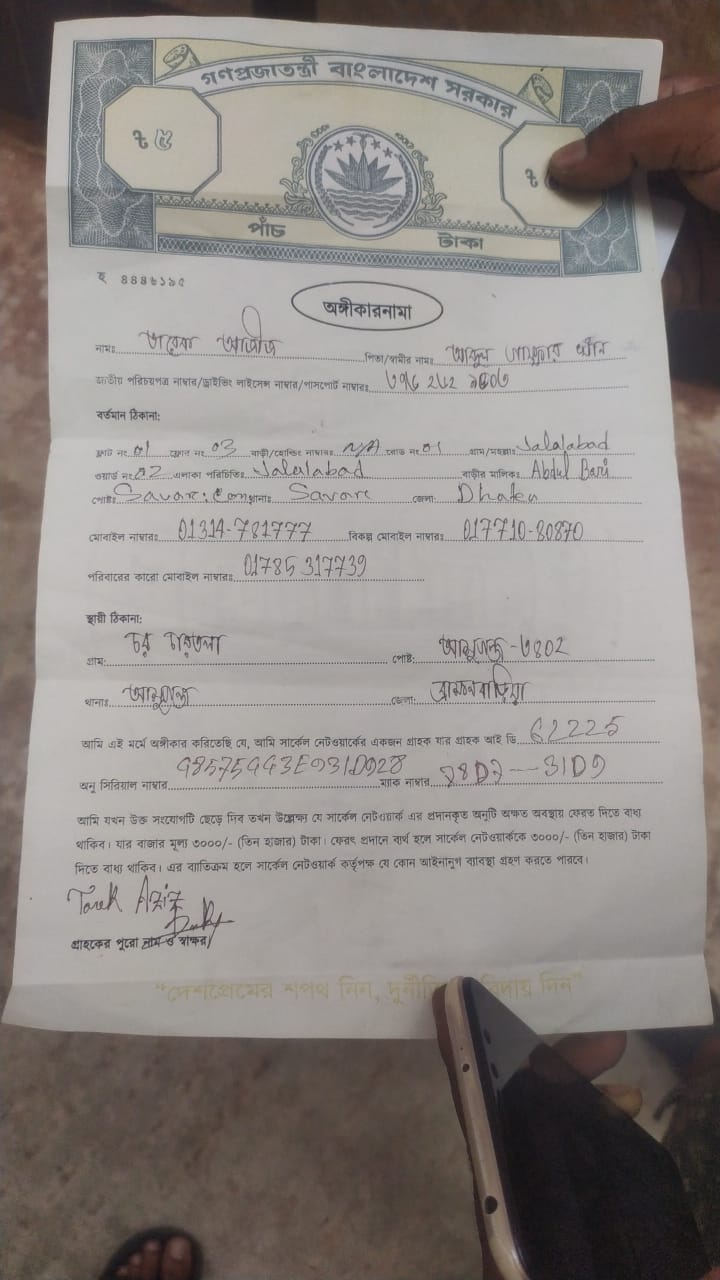 গণপ্রজাতন্ত্রী বাংলাদেশ সরকার
৳ ৫
৳
পাঁচ টাকা
হ ৪৪৪৬১৯৫
অঙ্গীকারনামা
নামঃ তারেক আজিজ পিতা/স্বামীর নামঃ আব্দুল গাফ্ফার খাঁন
জাতীয় পরিচয়পত্র নাম্বার/ড্রাইভিং লাইসেন্স নাম্বার/পাসপোর্ট নাম্বারঃ
বর্তমান ঠিকানা:
ফ্লাট নং 01 ফ্লোর নং 03 বাড়ী/হোল্ডিং নাম্বারঃ N/A রোড নং 01 গ্রাম/মহল্লাঃ Jalalabad
ওয়ার্ড নং 02 এলাকা পরিচিতিঃ Jalalabad বাড়ীর মালিকঃ Abdul Bari
পোষ্টঃ Savar থানাঃ Savar জেলা: Dhaka
মোবাইল নাম্বারঃ 01314-781777 বিকল্প মোবাইল নাম্বারঃ 017710-80870
পরিবারের কারো মোবাইল নাম্বারঃ 01785317739
স্থায়ী ঠিকানা:
গ্রাম: চর চারতলা পোষ্ট: আশুগঞ্জ-৩402
থানাঃ আশুগঞ্জ জেলা: ব্রাহ্মনবাড়িয়া
আমি এই মর্মে অঙ্গীকার করিতেছি যে, আমি সার্কেল নেটওয়ার্কের একজন গ্রাহক যার গ্রাহক আই ডি 62225
অনু সিরিয়াল নাম্বার ম্যাক নাম্বার
আমি যখন উক্ত সংযোগটি ছেড়ে দিব তখন উল্লেক্ষ্য যে সার্কেল নেটওয়ার্ক এর প্রদানকৃত অনুটি অক্ষত অবস্থায় ফেরত দিতে বাধ্য
থাকিব। যার বাজার মূল্য ৩০০০/- (তিন হাজার) টাকা। ফেরৎ প্রদানে ব্যর্থ হলে সার্কেল নেটওয়ার্ককে ৩০০০/- (তিন হাজার) টাকা
দিতে বাধ্য থাকিব। এর ব্যতিক্রম হলে সার্কেল নেটওয়ার্ক কর্তৃপক্ষ যে কোন আইনানুগ ব্যবস্থা গ্রহণ করতে পারবে।
Tarek Aziz
গ্রাহকের পুরো নাম ও স্বাক্ষর
"দেশপ্রেমের শপথ নিন, বিদায় দিন"